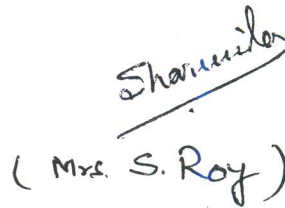 Sharmila
( Mrs. S. Roy )